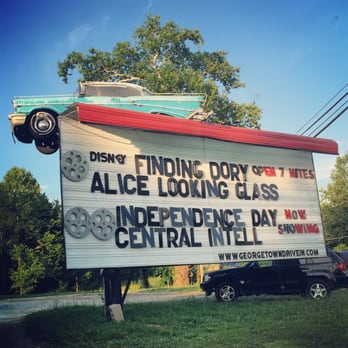 DISNEY FINDING DORY OPEN 7 NITES
ALICE LOOKING GLASS
INDEPENDENCE DAY NOW
CENTRAL INTELL SHOWING
WWW.GEORGETOWNDRIVEIN.COM